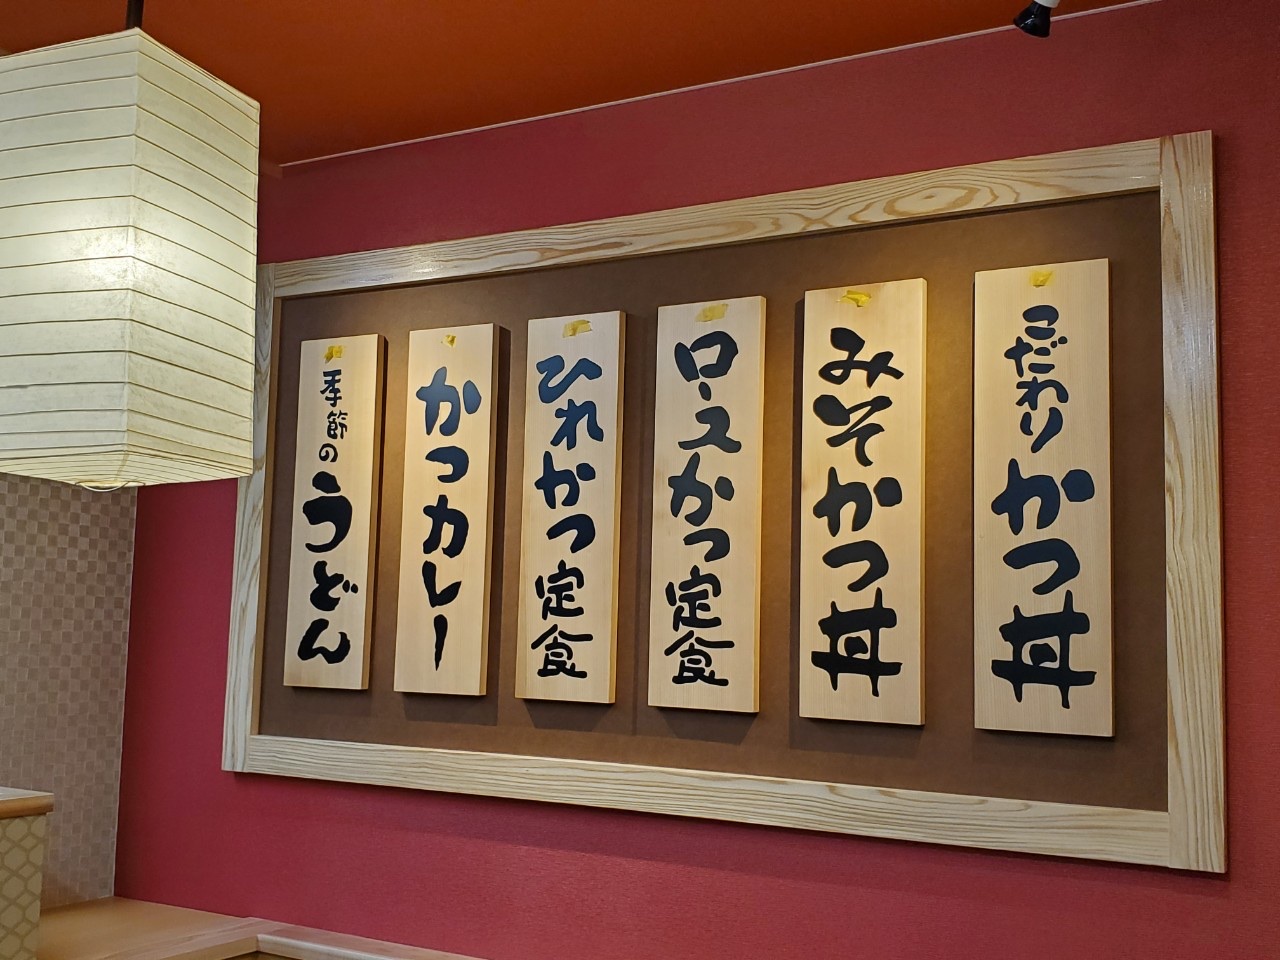 こだわりかつ丼
みそかつ丼
ロースかつ定食
ひれかつ定食
かつカレー
季節のうどん